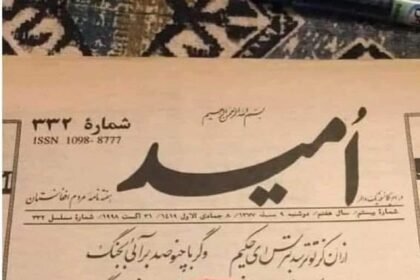 بسم الله الرحمن الرحیم
شمارهٔ ۳۳۲
ISSN 1098-8777
اُمید
هفته نامهٔ مردم افغانستان
شمارهٔ بیستم / سال هفتم / دوشنبه ۹ سنبلهٔ ۱۳۷۷ / ۸ جمادی الاول ۱۴۱۹ / ۳۱ اگست ۱۹۹۸ / شمارهٔ مسلسل ۳۳۲
ازان کز تو ترسد بترس ای حکیم
وگر با چنو صد برآئی بجنگ